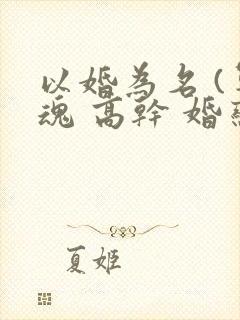 以婚為名(
魂 高幹 婚
夏姬